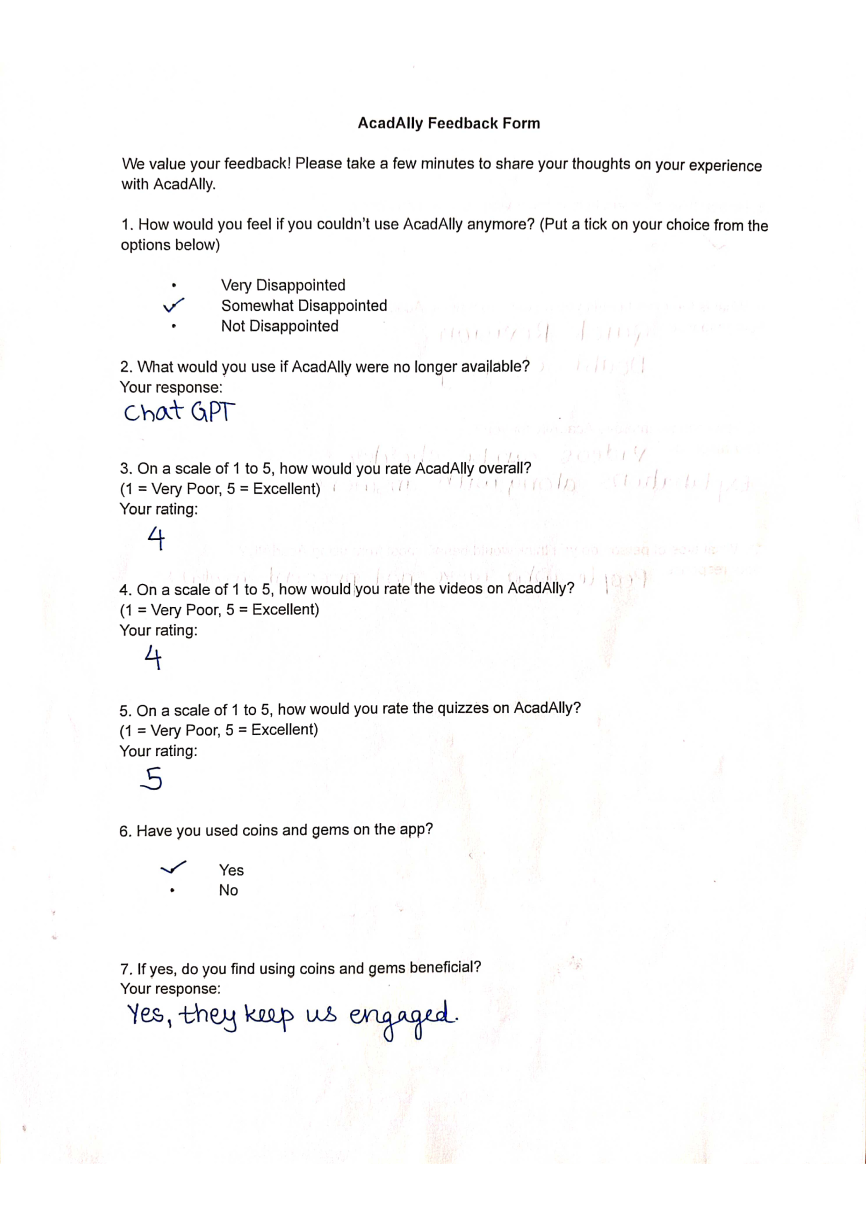 AcadAlly Feedback Form
We value your feedback! Please take a few minutes to share your thoughts on your experience
with AcadAlly.
1. How would you feel if you couldn't use AcadAlly anymore? (Put a tick on your choice from the
options below)
• Very Disappointed
✓ Somewhat Disappointed
• Not Disappointed
2. What would you use if AcadAlly were no longer available?
Your response:
Chat GPT
3. On a scale of 1 to 5, how would you rate AcadAlly overall?
(1 = Very Poor, 5 = Excellent)
Your rating:
4
4. On a scale of 1 to 5, how would you rate the videos on AcadAlly?
(1 = Very Poor, 5 = Excellent)
Your rating:
4
5. On a scale of 1 to 5, how would you rate the quizzes on AcadAlly?
(1 = Very Poor, 5 = Excellent)
Your rating:
5
6. Have you used coins and gems on the app?
✓ Yes
• No
7. If yes, do you find using coins and gems beneficial?
Your response:
Yes, they keep us engaged.